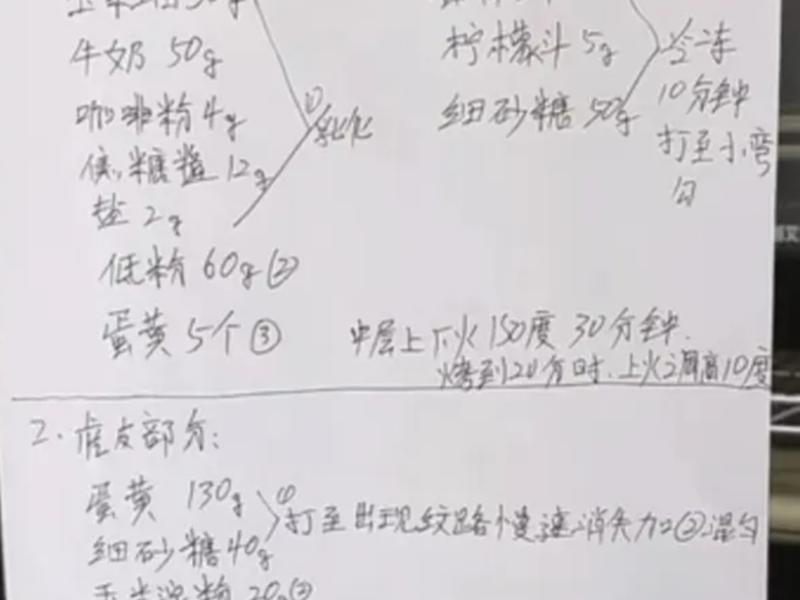 牛奶 50g
咖啡粉 4g
低糖 12g
盐 2g
① 乳化
低粉 60g ②
蛋黄 5个 ③
柠檬汁 5g
细砂糖 50g
冷冻
10分钟
打至小弯
勾
中层上下火 150度 30分钟.
烤到20分时.上火调高10度
2.虎皮部分:
蛋黄 130g
细砂糖 40g
① 打至出现纹路慢速消失加②混匀
玉米淀粉 20g ②